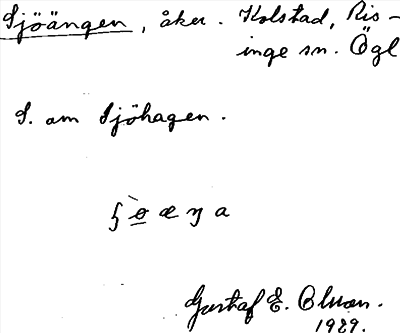 Sjöängen, åker. Kolstad, Ris-
inge sn. Ögl
S. om Sjöhagen.
Gustaf E.
1929.